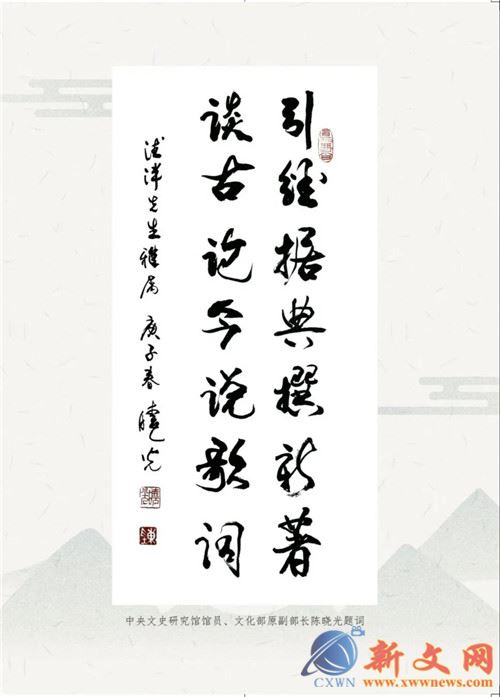 引经据典撰新著
谈古论今说歌词
先生雅属 庚子春 晓光
中央文史研究馆馆员、文化部原副部长陈晓光题词
CXWN
新文网
www.xwwnews.com